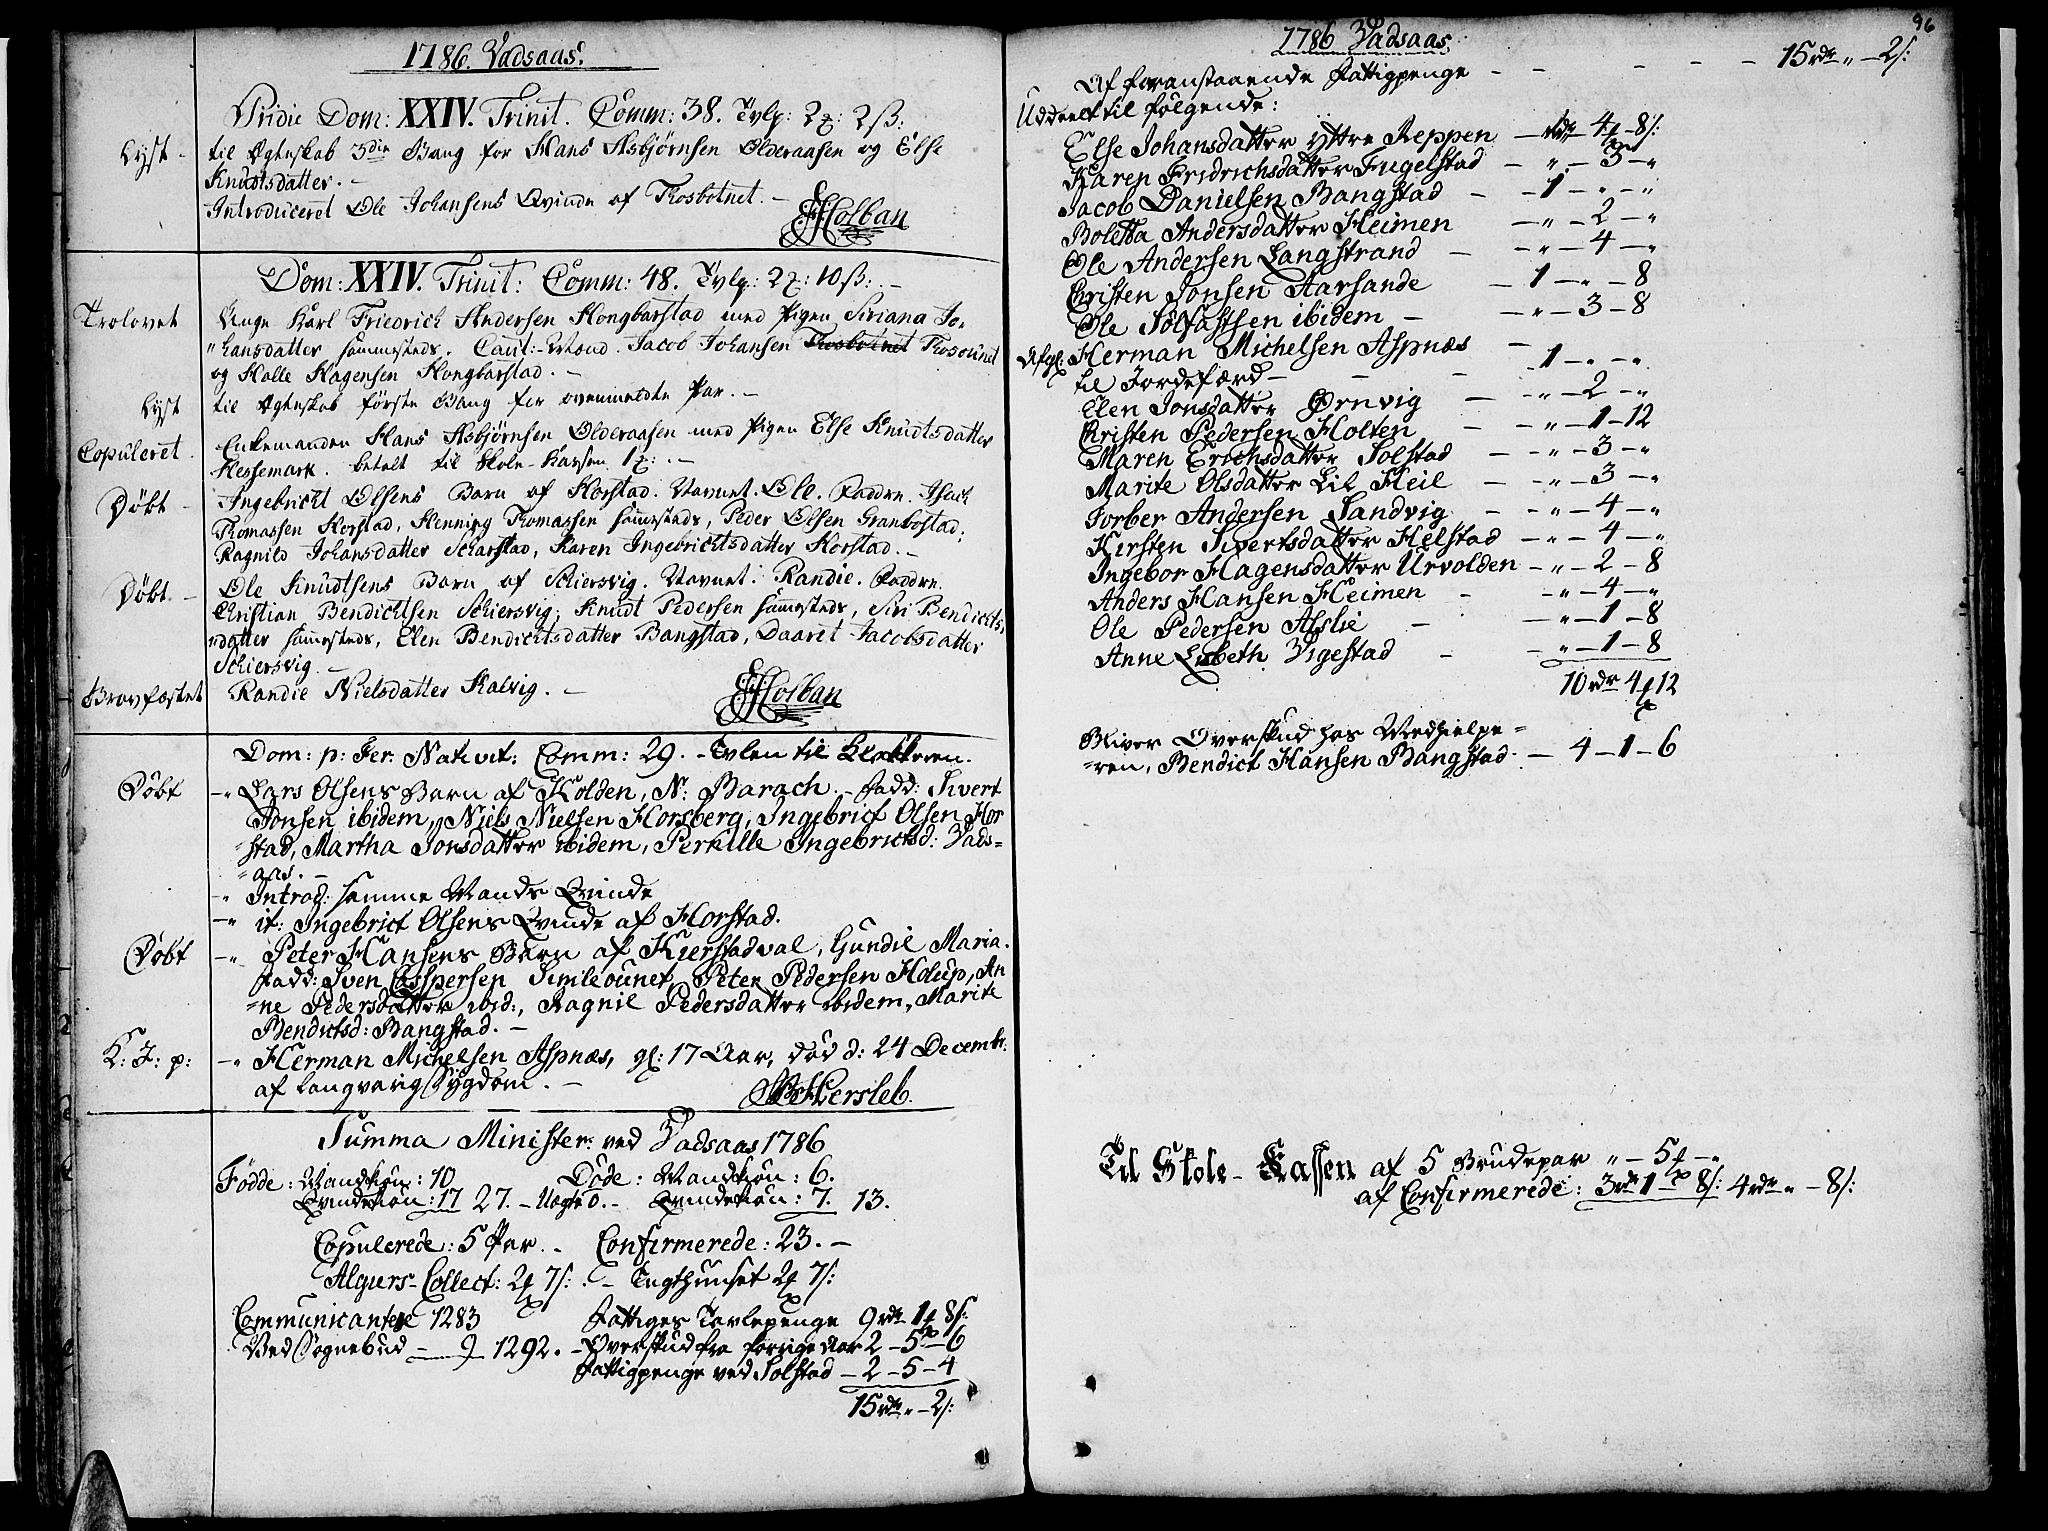 1786. Vadsaas.
Pridie Dom: XXIV. Trinit. Comm: 38. Tvlp: 2 : 2 ß:
Lyst - til Ægteskab 3die Gang for Hans Asbjørnsen Olderaasen og Else
Knudtsdatter. -
Introduceret Ole Johansens Qvinde af Trosbotnet. -
Holban
Dom: XXIV. Trinit: Comm: 48. Tvlp: 2 : 10 ß: -
Trolovet Unge Karl Friedrich Andersen Kongbarstad med Pigen Siriana Jo-
"hansdatter sammesteds. Caut:-Mænd. Jacob Johansen Trosbotnet Trosounet
og Halle Hagensen Kongbarstad. -
Lyst til Ægteskab første Gang for ovenmeldte Par. -
Copuleret. Enkemanden Hans Asbjørnsen Olderaasen med Pigen Else Knudtsdatter
Hessemark. betalt til Skole-Kassen 1 : -
Døbt - Ingebricht Olsens Barn af Horstad. Navnet. Ole. Faddre. Isach
Thomassen Horstad, Henning Thomassen sammesteds, Peder Olsen Granbostad,
Ragnild Johansdatter Scharstad, Karen Ingebrichtsdatter Horstad. -
Døbt. - Ole Knudtsens Barn af Schiersvig. Navnet. Randie. Faddre.
Christian Bendichtsen Schiersvig, Knudt Pedersen sammesteds, Siri Bendichts,
"datter sammesteds, Elen Bendichtsdatter Bangstad, Daaret Jacobsdatter
Schiersvig. -
Gravfæstet Randie Nielsdatter Kalvig. -
Holban
Dom: p: Fer. Nativit: Comm: 29. - Tvlen til Klokkeren.
Døbt -" Lars Olsens Barn af Holden, N: Barach. - Fadd: Sivert
Jonsen ibidem, Niels Nielsen Horsberg, Ingebrict Olsen Hor
"stad, Martha Jonsdatter ibidem, Pernille Ingebrictsd: Vads-
"aas. -
-" Introd: samme Mands Qvinde
-" it: Ingebrict Olsens Qvinde af Horstad.
Døbt -" Peter Hansens Barn af Kierstadval, Gundil Maria.
Fadd: Sven Caspersen Simleounet, Peter Pedersen Holup, An
"ne Pedersdatter ibid:, Ragnil Pedersdatter ibidem, Marite
Bendictsd: Bangstad. -
K: J: p: -" Herman Michelsen Aspnæs, gl: 17 Aar, død d: 24 Decembr:
af langvarig Sygdom. -
Hersleb.
Summa Minister: ved Vadsaas 1786
Fødde: Mandkiøn: 10 Døde: Mandkiøn: 6.
Qvindekiøn: 17 27. - Uægte 0. - Qvindekiøn: 7. 13.
Copulerede: 5 Par. - Confirmerede: 23. -
Algiers-Collect: 2 7 ß: - Tugthuuset 2 7 ß:
Communicantere 1283 Fattiges Tavlepenge 9 rdr 1 8 ß:
Ved Sognebud - 9 1292. - Overskud fra forrige Aar 2 - 5 - 6
Fattigpenge ved Solstad - 2 - 5 - 4
15 rdr " - 2 ß:
96
1786 Vadsaas.
Af foranstaaende Fattigpenge - - - - - 15 rdr " - 2 ß:
Uddeelt til følgende:
Else Johansdatter Yttre Reppen - " rdr 4 - 8 ß:
Karen Fridrichsdatter Fugelstad - " - 3 - "
Jacob Danielsen Bangstad - - 1 - " - "
Boletta Andersdatter Heimen - " - 2 - "
Ole Andersen Langstrand - - " - 4 - "
Christen Jonsen Aarsande - 1 - " - 8
Ole Solfastsen ibidem - - " - 3 - 8
Afgl: Herman Michelsen Aspnæs -
til Jordefærd - - - 1 - " - "
Elen Jonsdatter Ørnvig - - " - 2 - "
Christen Pedersen Holten - - " - 1 - 12
Maren Erichsdatter Solstad - - " - 3 - "
Marite Olsdatter Lil Heil - - " - 3 - "
Torber Andersen Sandvig - - " - 4 - "
Kirsten Sivertsdatter Helstad - " - 4 - "
Ingebor Hagensdatter Urvolden - " - 2 - 8
Anders Hansen Heimen - - " - 4 - "
Ole Pedersen Aslie - - " - 1 - 8
Anne Lisbeth Vigestad - - " - 1 - 8
10 rdr 4 12
Bliver Overskud hos Medhielpe-
"ren, Bendict Hansen Bangstad. - 4 - 1 - 6
Til Skole-Kassen af 5 Brudepar " - 5 - "
af Confirmerede: 3 rdr 1 8 ß: 4 rdr " - 8 ß: